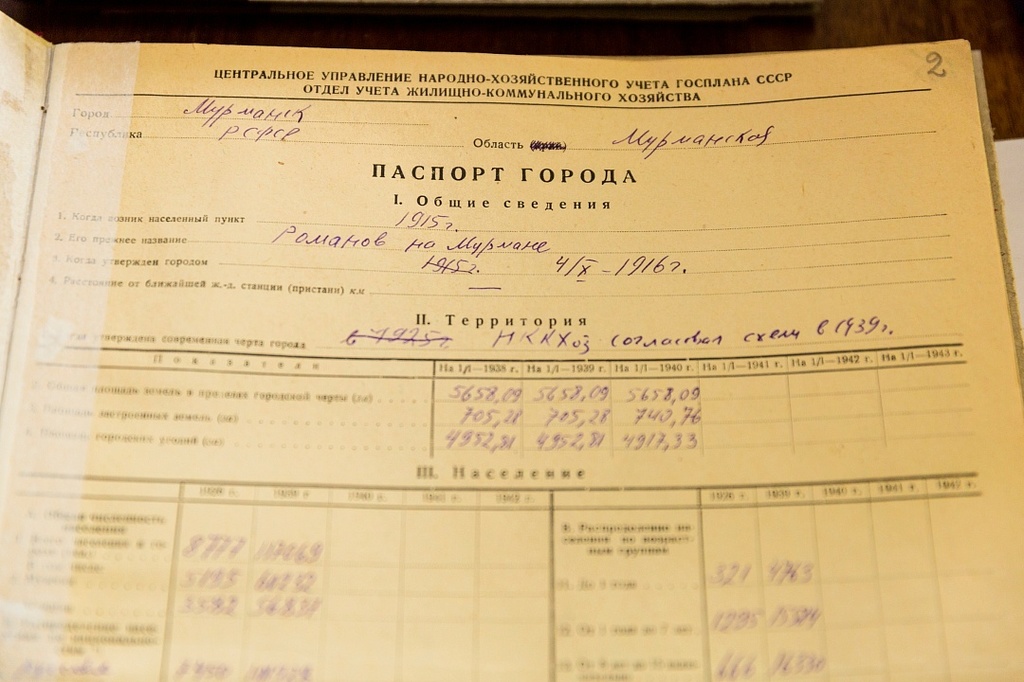 2
ЦЕНТРАЛЬНОЕ УПРАВЛЕНИЕ НАРОДНО-ХОЗЯЙСТВЕННОГО УЧЕТА ГОСПЛАНА СССР
ОТДЕЛ УЧЕТА ЖИЛИЩНО-КОММУНАЛЬНОГО ХОЗЯЙСТВА
Город Мурманск
Республика РСФСР Область Мурманская
ПАСПОРТ ГОРОДА
I. Общие сведения
1. Когда возник населенный пункт 1915 г.
2. Его прежнее название Романов на Мурмане
3. Когда утвержден городом 1915 г. 4/X-1916 г.
4. Расстояние от ближайшей ж.-д. станции (пристани) км —
II. Территория
утверждена современная черта города в 1925 г. НККХоз согласовал схему в 1939 г.
Показатели На 1/I—1938 г. На 1/I—1939 г. На 1/I—1940 г. На 1/I—1941 г. На 1/I—1942 г. На 1/I—1943 г.
2. Общая площадь земель в пределах городской черты (га) 5658,09 5658,09 5658,09
3. Площадь застроенных земель (га) 705,28 705,28 740,76
4. Площадь городских угодий (га) 4952,81 4952,81 4917,33
III. Население
1926 г. 1939 г. 1940 г. 1941 г. 1942 г. 1926 г. 1939 г. 1940 г. 1941 г. 1942 г.
А. Общая численность населения
Б. Распределение населения по возрастным группам
8777
11. До 1 года 321 4763
12. От 1 года до 7 лет 1295